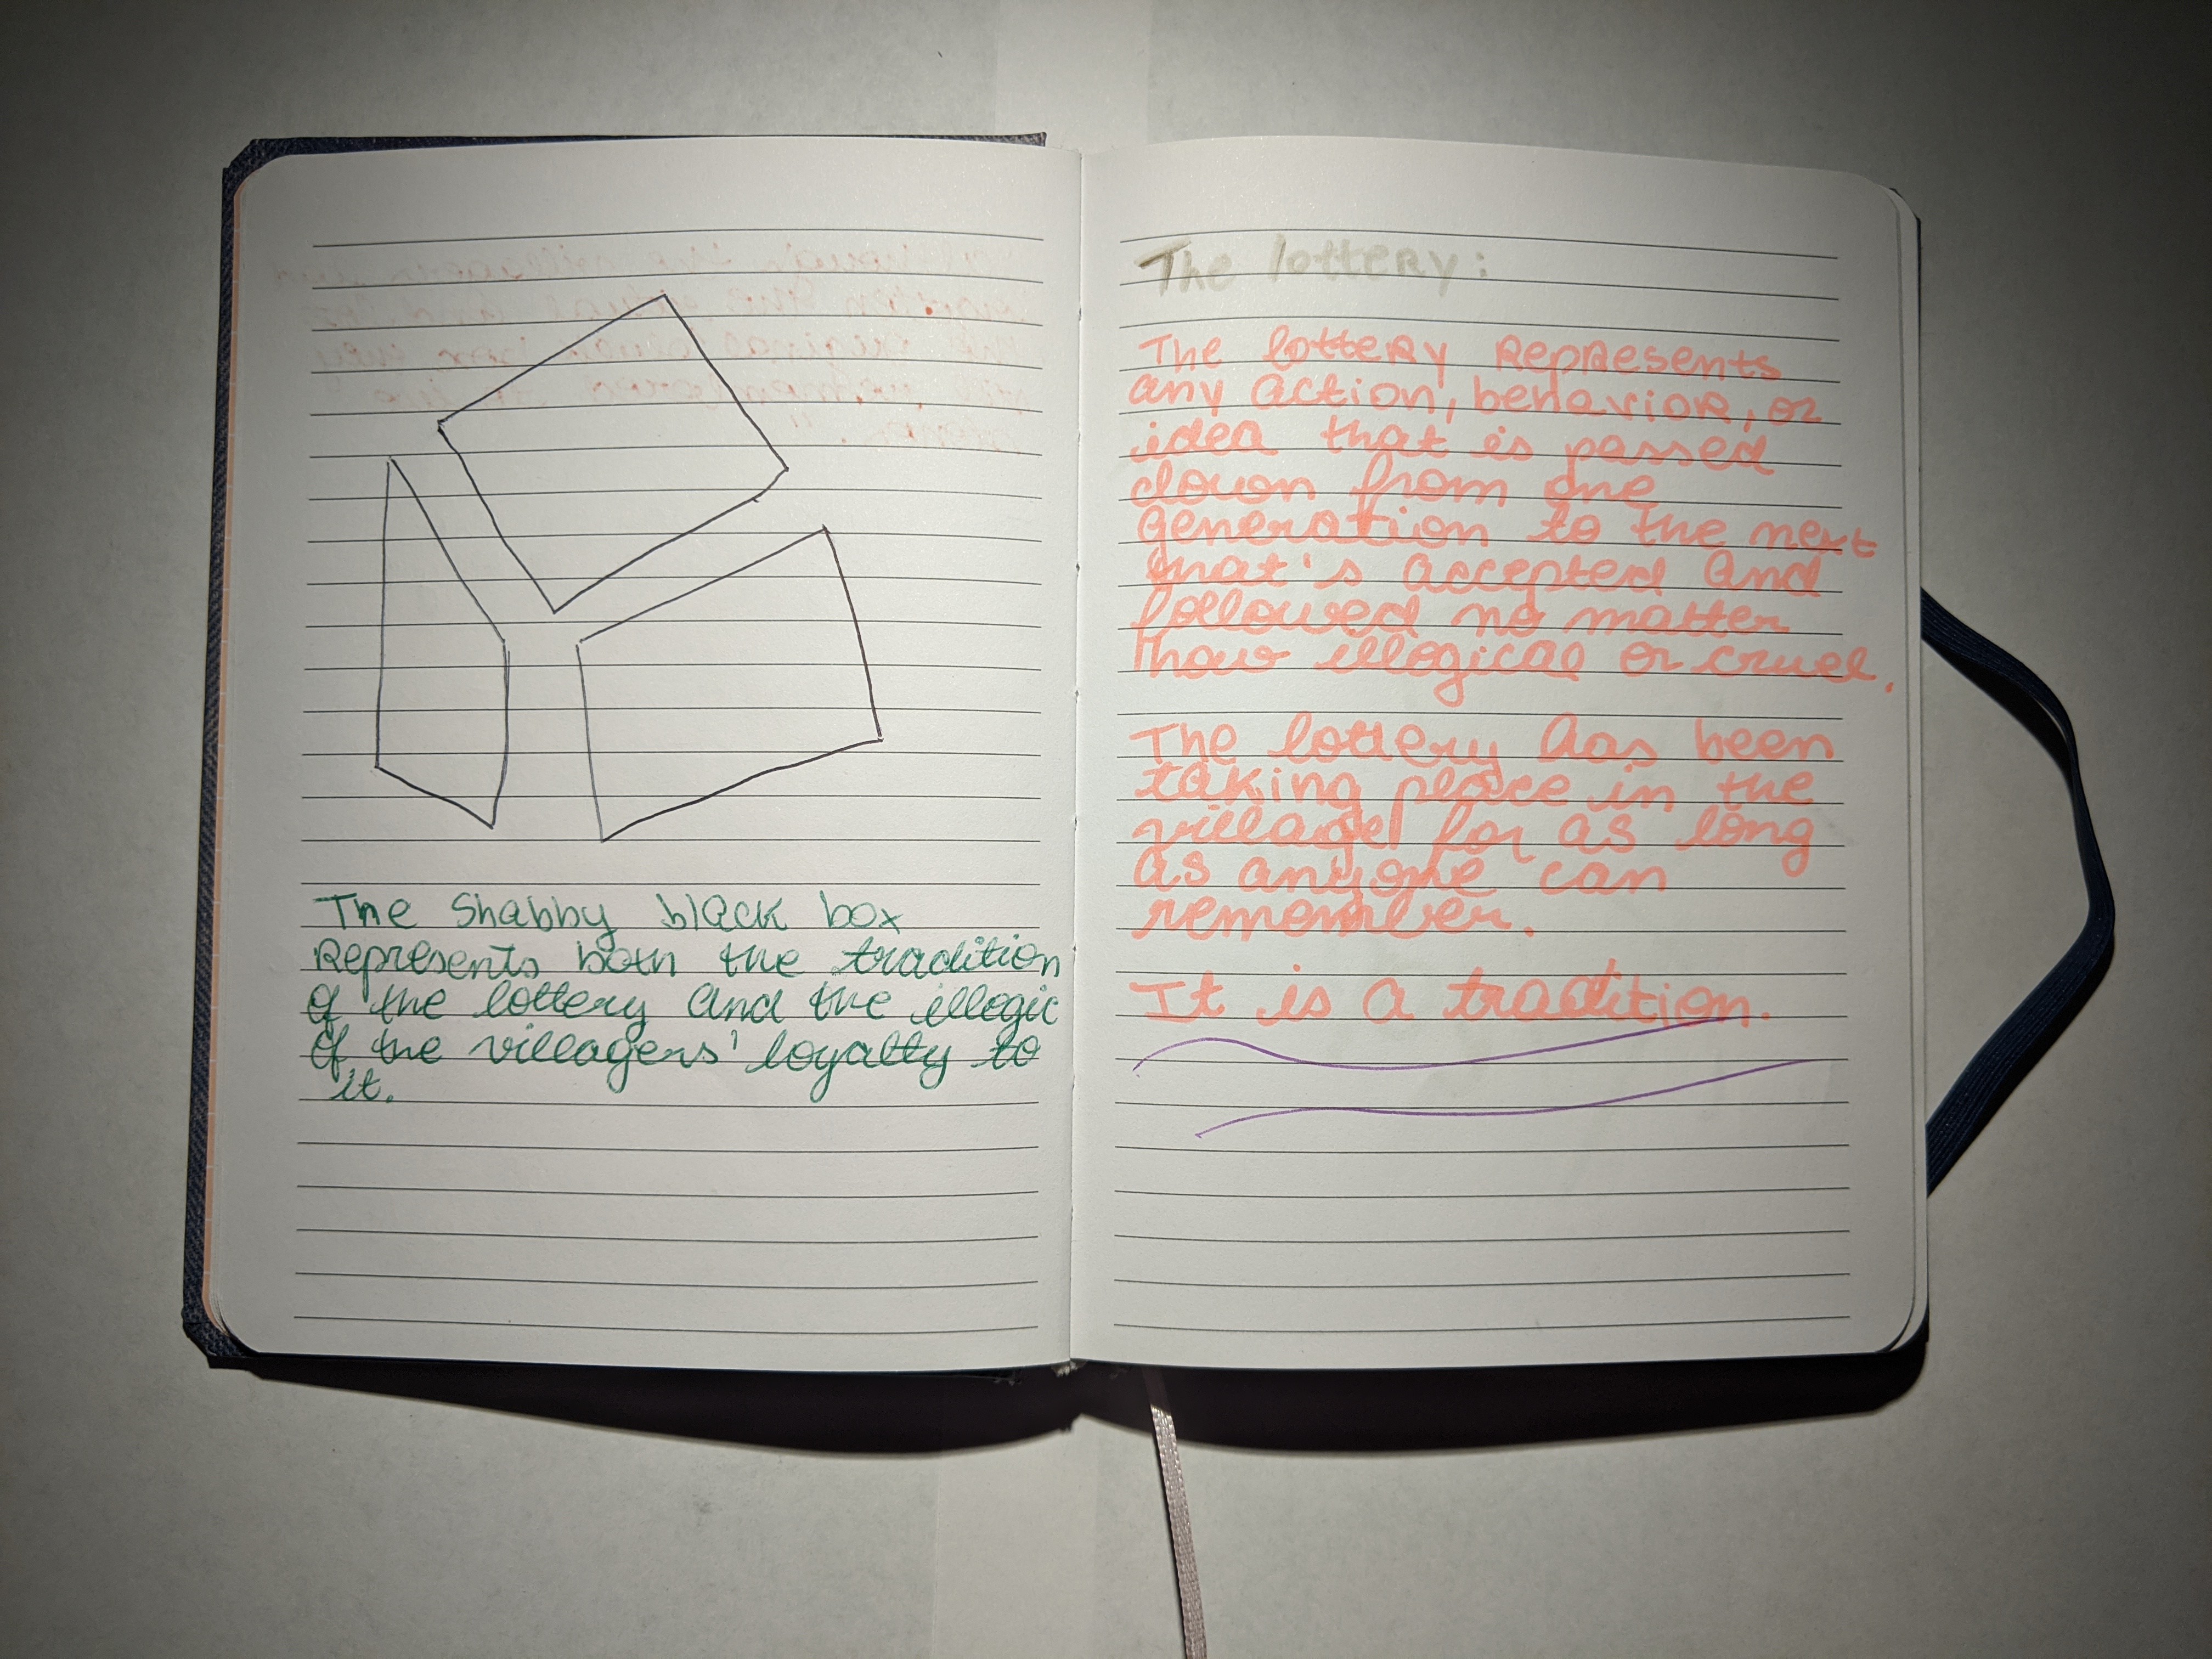 The Shabby black box
Represents both the tradition
of the lottery and the illogic
of the villagers' loyalty to
it.
The lottery:
The lottery Represents
any action, behavior, or
idea that is passed
down from one
generation to the next
that's accepted and
followed no matter
how illogical or cruel.
The lottery has been
taking place in the
village for as long
as anyone can
remember.
It is a tradition.